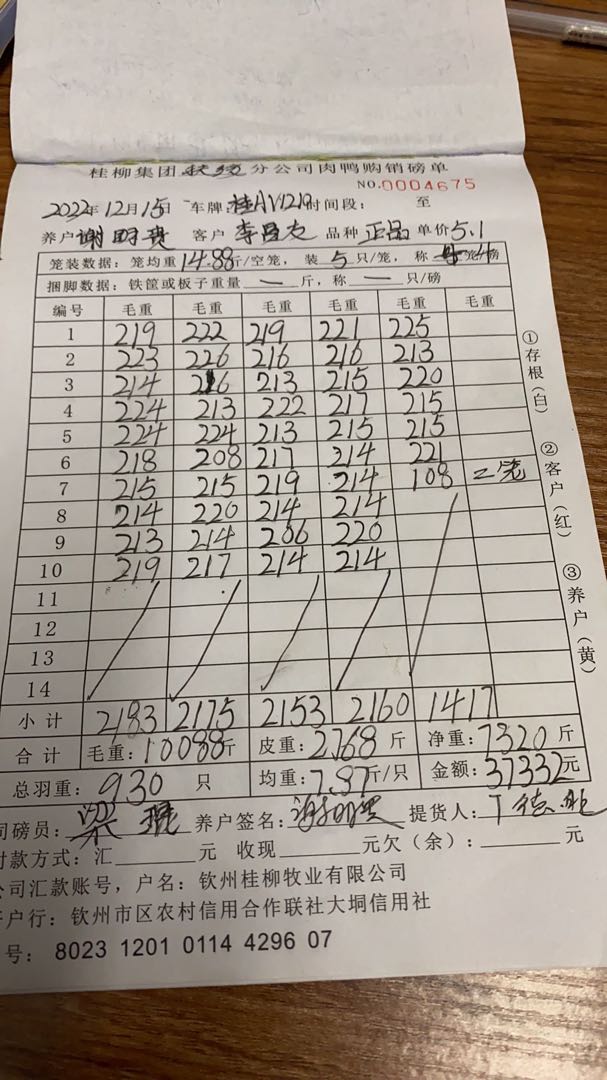 桂柳集团钦缘分公司肉鸭购销磅单
NO.0004675
2022年12月15日 车牌:桂AV1219 时间段: 至
养户谢明贵 客户 李昌友 品种 正品 单价5.1
笼装数据: 笼均重14.88斤/空笼, 装5只/笼, 称 4笼/磅
捆脚数据: 铁筐或板子重量 — 斤, 称 — 只/磅
编号 毛重 毛重 毛重 毛重 毛重 毛重
1 219 222 219 221 225
2 223 226 216 216 213
3 214 216 213 215 220
4 224 213 222 217 215
5 224 224 213 215 215
6 218 208 217 214 221
7 215 215 219 214 108 二笼
8 214 220 214 214
9 213 214 206 220
10 219 217 214 214
11
12
13
14
小计 2183 2175 2153 2160 1417
合计 毛重:10088斤 皮重:2768斤 净重:7320斤
总羽重: 930 只 均重:7.87斤/只 金额:37332元
司磅员: 养户签名:谢明贵 提货人:
付款方式: 汇 元 收现 元 欠(余): 元
公司汇款账号, 户名: 钦州桂柳牧业有限公司
开户行: 钦州市区农村信用合作联社大垌信用社
号: 8023 1201 0114 4296 07
①存根(白)
②客户(红)
③养户(黄)